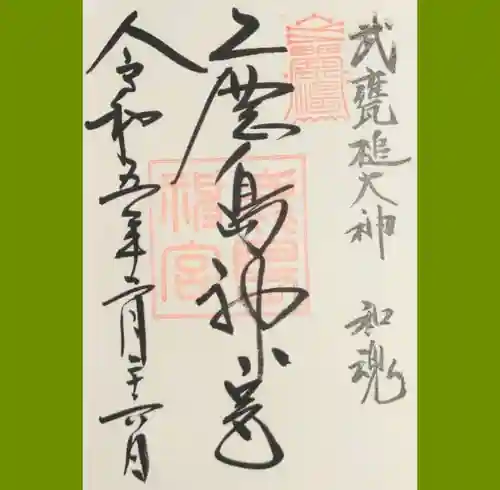 武甕槌大神 和魂
鹿島神宮
令和五年二月二十六日
鹿島
神宮